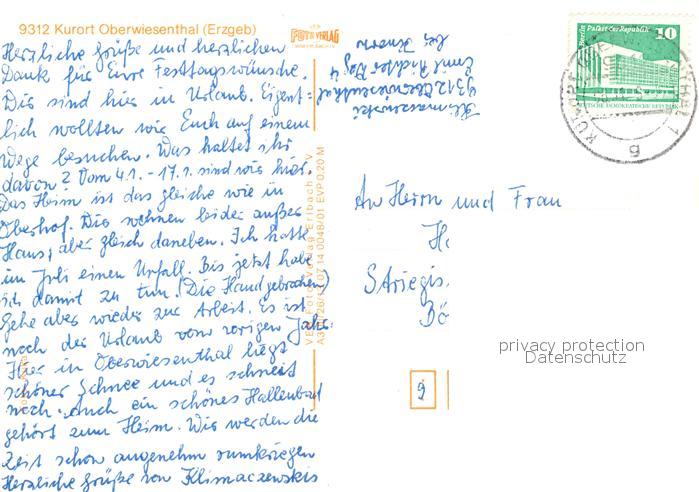 9312 Kurort Oberwiesenthal (Erzgeb)
Herzliche Grüße und herzlichen
Dank für Eure Festtagswünsche.
Wir sind hier in Urlaub. Eigent=
lich wollten wir Euch auf einem
Wege besuchen. Was haltet ihr
davon? Vom 4.1. - 17.1. sind wir hier.
Das Heim ist das gleiche wie in
Oberhof. Wir wohnen leider außer
Haus, aber gleich daneben. Ich hatte
im Juli einen Unfall. Bis jetzt habe
ich damit zu tun. (Die Hand gebrochen)
Gehe aber wieder zur Arbeit. Es ist
noch der Urlaub vom vorigen Jahr.
Hier in Oberwiesenthal liegt
schöner Schnee und es schneit
noch. Auch ein schönes Hallenbad
gehört zum Heim. Wir werden die
Zeit schon angenehm rumkriegen
Herzliche Grüße von Klimaczewskis
FOTO VERLAG
Klimaczewski
9312 Oberwiesenthal
Emil Richter Weg 4
bei
A3/1726/ 07 14 0048/01 EVP 0,20 M
Berlin, Palast der Republik
10
DEUTSCHE DEMOKRATISCHE REPUBLIK
KURORT
1
g
An Herrn und Frau
Striegis
Bö
9
privacy protection
Datenschutz